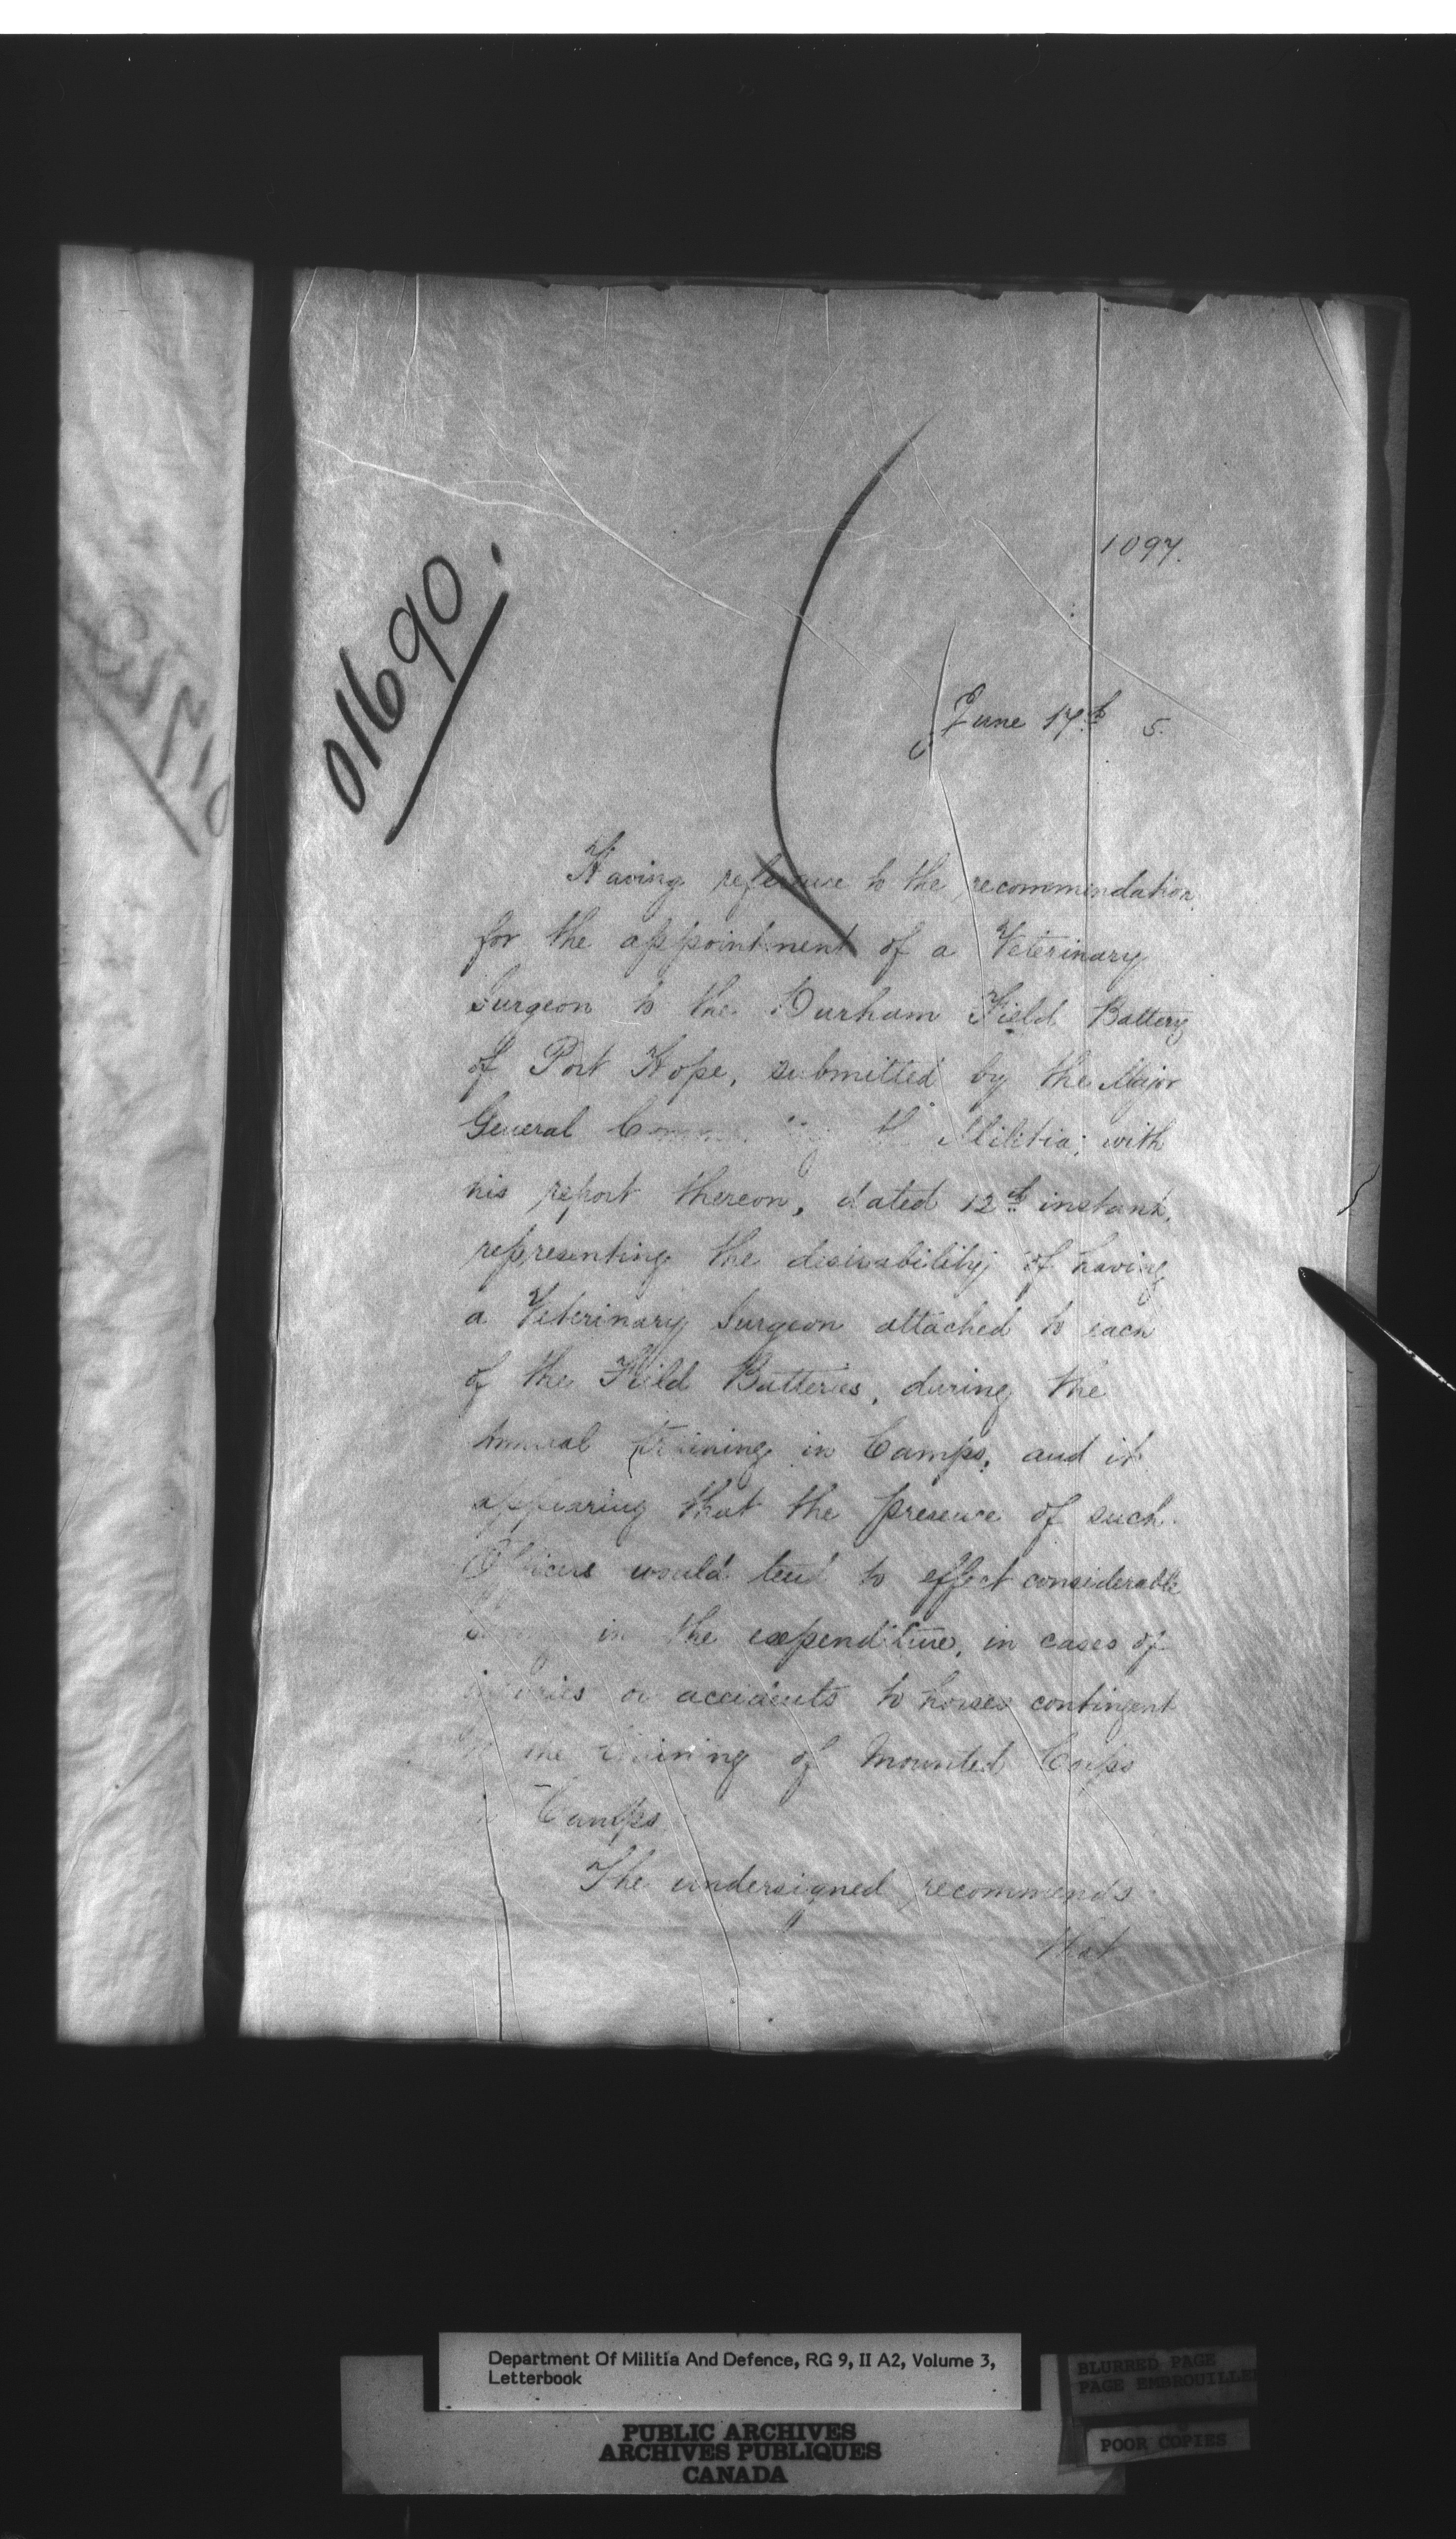 1097.
011690.
June 17th 5.
Having reference to the recommendation
for the appointment of a Veterinary
Surgeon to the Durham Field Battery
of Port Hope, submitted by the Major
General Militia; with
his report thereon, dated 12th instant,
representing the desirability of having
a Veterinary Surgeon attached to each
of the Field Batteries, during the
Annual training in Camps, and it
appearing that the presence of such
Officers would tend to effect considerable
in the expenditure, in cases of
injuries or accidents to horses contingent
the training of Mounted Corps
Camps.
The undersigned recommends
that
Department Of Militia And Defence, RG 9, II A2, Volume 3,
Letterbook
PUBLIC ARCHIVES
ARCHIVES PUBLIQUES
CANADA
BLURRED PAGE
PAGE EMBROUILLE
POOR COPIES